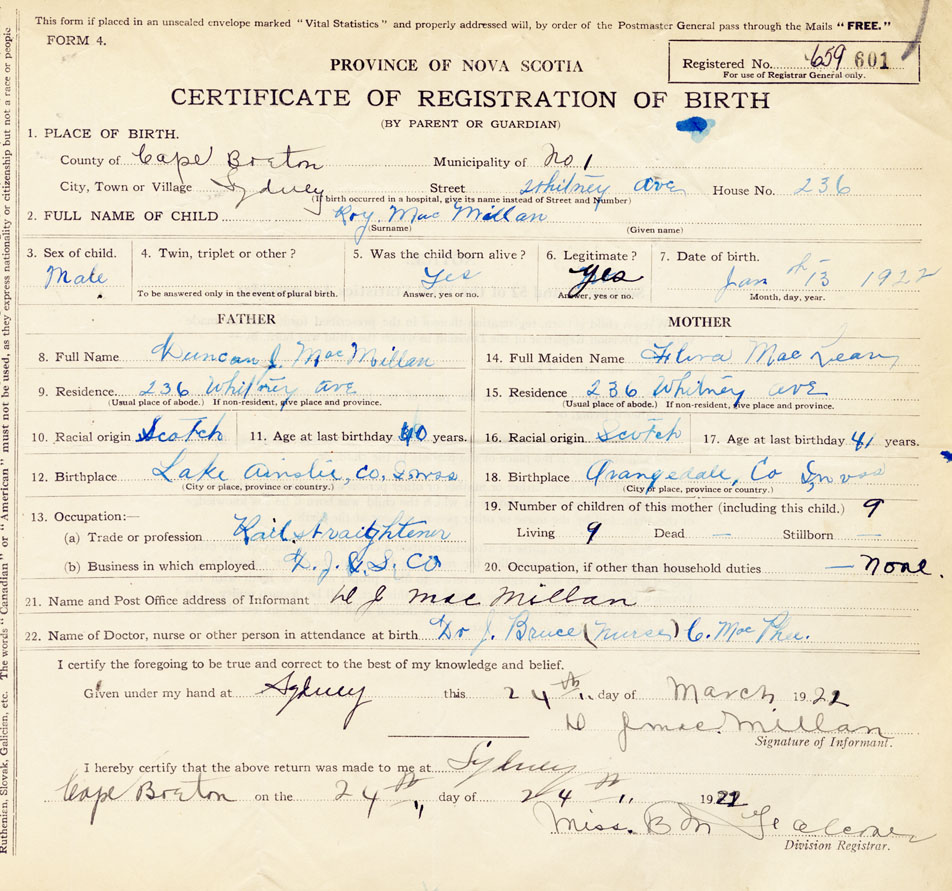 This form if placed in an unsealed envelope marked "Vital Statistics" and properly addressed will, by order of the Postmaster General pass through the Mails "FREE."
FORM 4.
Registered No. 659 601
For use of Registrar General only.
PROVINCE OF NOVA SCOTIA
CERTIFICATE OF REGISTRATION OF BIRTH
(BY PARENT OR GUARDIAN)
1. PLACE OF BIRTH.
County of Cape Breton Municipality of No 1
City, Town or Village Sydney Street Whitney Ave House No. 236
(If birth occurred in a hospital, give its name instead of Street and Number)
2. FULL NAME OF CHILD Roy Mac Millan
(Surname) (Given name)
3. Sex of child. 4. Twin, triplet or other? 5. Was the child born alive? 6. Legitimate? 7. Date of birth.
Male Yes Yes Jan th 13 1922
To be answered only in the event of plural birth. Answer, yes or no. Answer, yes or no. Month, day, year.
FATHER MOTHER
8. Full Name Duncan J. Mac Millan 14. Full Maiden Name Flora Mac Lean
9. Residence 236 Whitney Ave 15. Residence 236 Whitney Ave
(Usual place of abode.) If non-resident, give place and province. (Usual place of abode.) If non-resident, give place and province.
10. Racial origin Scotch 11. Age at last birthday 40 years. 16. Racial origin Scotch 17. Age at last birthday 41 years.
12. Birthplace Lake Ainslie, Co. 18. Birthplace Orangedale, Co
(City or place, province or country.) (City or place, province or country.)
13. Occupation:— 19. Number of children of this mother (including this child.) 9
(a) Trade or profession Rail straightener Living 9 Dead — Stillborn —
(b) Business in which employed S. Co 20. Occupation, if other than household duties — None.
21. Name and Post Office address of Informant D J Mac Millan
22. Name of Doctor, nurse or other person in attendance at birth Dr J. Bruce (Nurse) C. Mac Phee.
I certify the foregoing to be true and correct to the best of my knowledge and belief.
Given under my hand at Sydney this 24th day of March 1922
D J Mac Millan
Signature of Informant.
I hereby certify that the above return was made to me at Sydney
Cape Breton on the 24th day of 24th 1922
Miss. B M
Division Registrar.
Ruthenian, Slovak, Galician, etc. The words "Canadian" or "American" must not be used, as they express nationality or citizenship but not a race or people